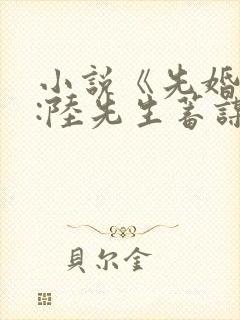 小説《先婚
:陸先生蓄謀
貝尔金